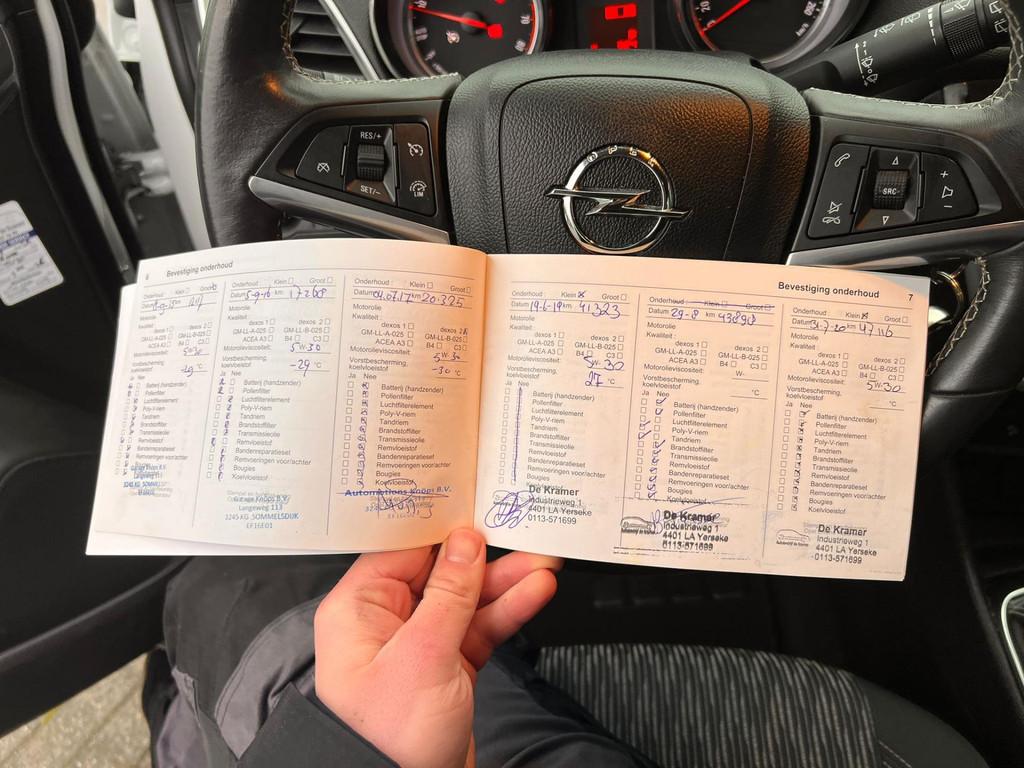 RES/+
SET/-
LIM
OPEL
SRC
6 Bevestiging onderhoud
Onderhoud: Klein Groot
Datum km
Motorolie
Kwaliteit:
dexos 1 dexos 2
GM-LL-A-025 GM-LL-B-025
ACEA A3 B4 C3
Motorolieviscositeit:
5W30
Vorstbescherming, koelvloeistof
-29 °C
Ja Nee
Batterij (handzender)
Pollenfilter
Luchtfilterelement
Poly-V-riem
Tandriem
Brandstoffilter
Transmissieolie
Remvloeistof
Bandenreparatieset
Remvoeringen voor/achter
Bougies
Koelvloeistof
Garage Knops B.V.
Langeweg 113
Onderhoud: Klein Groot
Datum 5-9-16 km 17268
Motorolie
Kwaliteit:
dexos 1 dexos 2
GM-LL-A-025 GM-LL-B-025
ACEA A3 B4 C3
Motorolieviscositeit:
5W-30
Vorstbescherming, koelvloeistof
-29 °C
Ja Nee
Batterij (handzender)
Pollenfilter
Luchtfilterelement
Poly-V-riem
Tandriem
Brandstoffilter
Transmissieolie
Remvloeistof
Bandenreparatieset
Remvoeringen voor/achter
Bougies
Koelvloeistof
Garage Knops B.V.
Langeweg 113
3245 KG SOMMELSDIJK
Onderhoud: Klein Groot
Datum 04.07.17 km 20.325
Motorolie
Kwaliteit:
dexos 1 dexos 2
GM-LL-A-025 GM-LL-B-025
ACEA A3 B4 C3
Motorolieviscositeit:
5W-30
Vorstbescherming, koelvloeistof
-30 °C
Ja Nee
Batterij (handzender)
Pollenfilter
Luchtfilterelement
Poly-V-riem
Tandriem
Brandstoffilter
Transmissieolie
Remvloeistof
Bandenreparatieset
Remvoeringen voor/achter
Bougies
Koelvloeistof
Bevestiging onderhoud 7
Onderhoud: Klein Groot
Datum 19-6-19 km 41323
Motorolie
Kwaliteit:
dexos 1 dexos 2
GM-LL-A-025 GM-LL-B-025
ACEA A3 B4 C3
Motorolieviscositeit:
5W30
Vorstbescherming, koelvloeistof
27 °C
Ja Nee
Batterij (handzender)
Pollenfilter
Luchtfilterelement
Poly-V-riem
Tandriem
Brandstoffilter
Transmissieolie
Remvloeistof
Bandenreparatieset
Remvoeringen voor/achter
De Kramer
Industrieweg 1
4401 LA Yerseke
0113-571699
Onderhoud: Klein Groot
Datum 29-8 km 43898
Motorolie
Kwaliteit:
dexos 1 dexos 2
GM-LL-A-025 GM-LL-B-025
ACEA A3 B4 C3
Motorolieviscositeit:
W-
Vorstbescherming, koelvloeistof
°C
Ja Nee
Batterij (handzender)
Pollenfilter
Luchtfilterelement
Poly-V-riem
Tandriem
Brandstoffilter
Transmissieolie
Remvloeistof
Bandenreparatieset
Remvoeringen voor/achter
Bougies
Koelvloeistof
De Kramer
Industrieweg 1
4401 LA Yerseke
0113-571699
Onderhoud: Klein Groot
Datum 31-7-20 km 47116
Motorolie
Kwaliteit:
dexos 1 dexos 2
GM-LL-A-025 GM-LL-B-025
ACEA A3 B4 C3
Motorolieviscositeit:
5W30
Vorstbescherming, koelvloeistof
°C
Ja Nee
Batterij (handzender)
Pollenfilter
Luchtfilterelement
Poly-V-riem
Tandriem
Brandstoffilter
Transmissieolie
Remvloeistof
Bandenreparatieset
Remvoeringen voor/achter
Bougies
Koelvloeistof
De Kramer
Industrieweg 1
4401 LA Yerseke
0113-571699